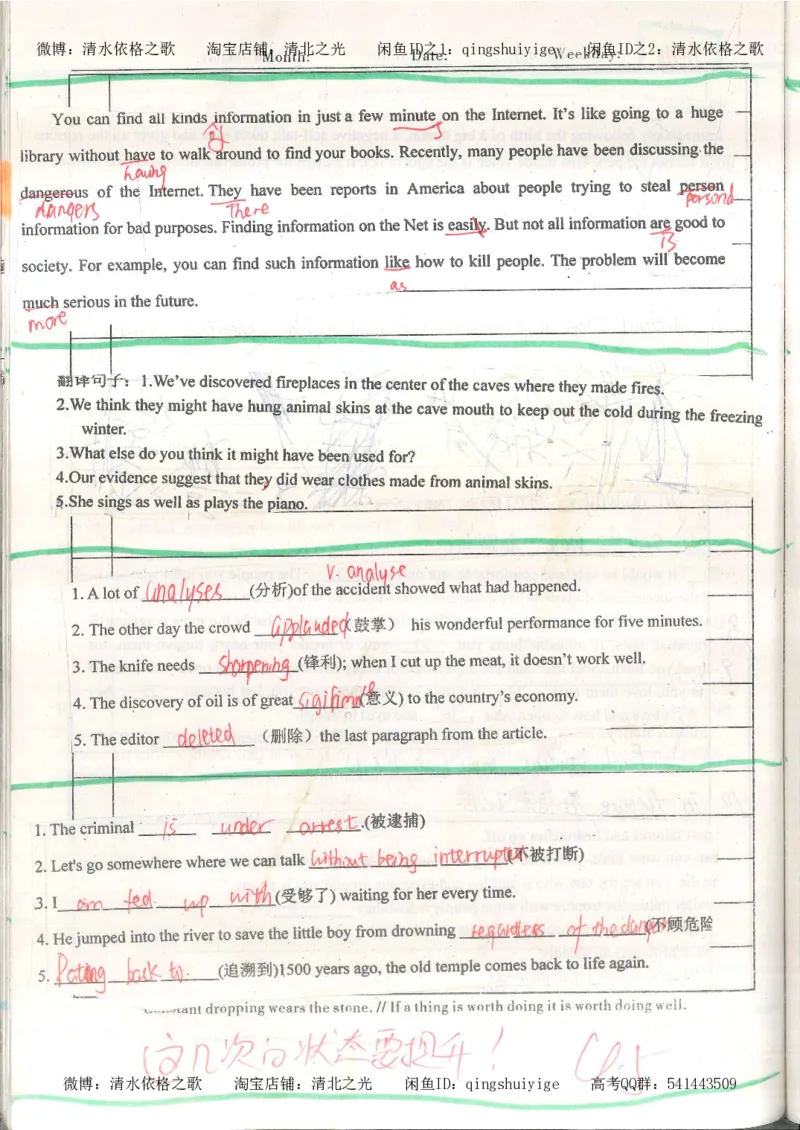 微博：清水依格之歌 淘宝店铺：清北之光 闲鱼ID之1：qingshuiyige 闲鱼ID之2：清水依格之歌
Month: Date: Weekday:
You can find all kinds information in just a few minute on the Internet. It's like going to a huge
of s
library without have to walk around to find your books. Recently, many people have been discussing the
having
dangerous of the Internet. They have been reports in America about people trying to steal person
dangers There personal
information for bad purposes. Finding information on the Net is easily. But not all information are good to
is
society. For example, you can find such information like how to kill people. The problem will become
as
much serious in the future.
more
翻译句子：1.We've discovered fireplaces in the center of the caves where they made fires.
2.We think they might have hung animal skins at the cave mouth to keep out the cold during the freezing
winter.
3.What else do you think it might have been used for?
4.Our evidence suggest that they did wear clothes made from animal skins.
5.She sings as well as plays the piano.
v. analyse
1. A lot of analyses (分析)of the accident showed what had happened.
2. The other day the crowd applauded(鼓掌） his wonderful performance for five minutes.
3. The knife needs sharpening (锋利); when I cut up the meat, it doesn't work well.
4. The discovery of oil is of great (意义) to the country's economy.
5. The editor deleted （删除）the last paragraph from the article.
1. The criminal is under arrest.(被逮捕)
2. Let's go somewhere where we can talk without being interrupted(不被打断)
3. I am fed up with(受够了) waiting for her every time.
4. He jumped into the river to save the little boy from drowning regardless of the danger(不顾危险
5. Dating back to (追溯到)1500 years ago, the old temple comes back to life again.
Constant dropping wears the stone. // If a thing is worth doing it is worth doing well.
这几次的状态要提升！
微博：清水依格之歌 淘宝店铺：清北之光 闲鱼ID：qingshuiyige 高考QQ群：541443509